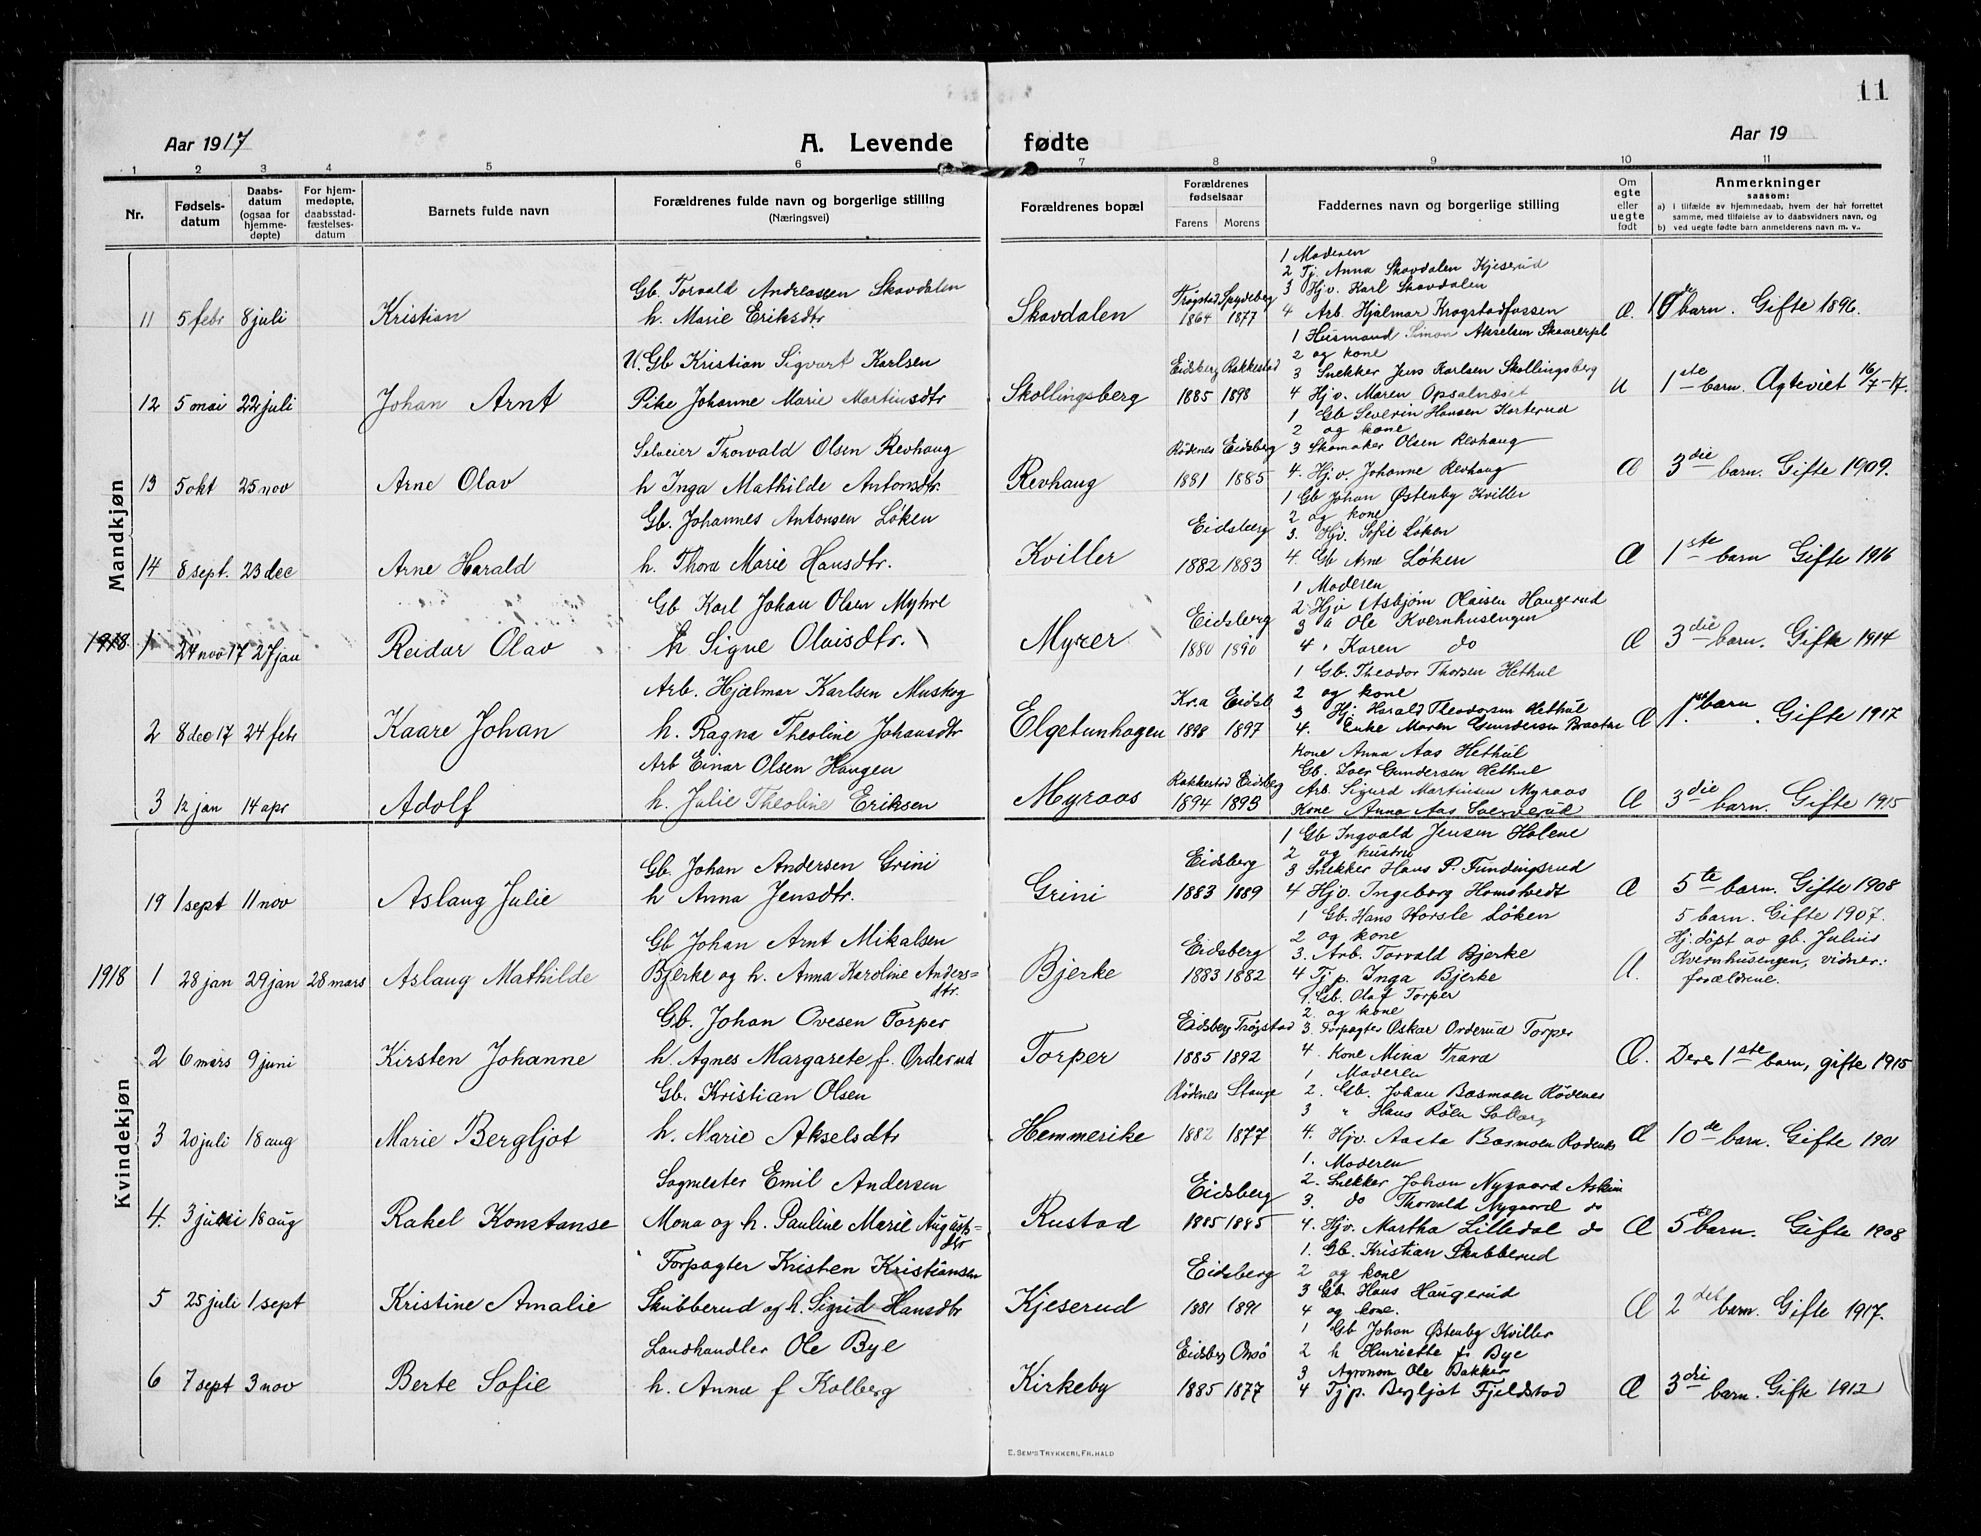 11
Aar 1917
A. Levende fødte
Aar 19
1 2 3 4 5 6 7 8 9 10 11
Nr.
Fødsels-
datum
Daabs-
datum
(ogsaa for
hjemme-
døpte)
For hjem-
medøpte,
daabsstad-
fæstelses-
datum
Barnets fulde navn
Forældrenes fulde navn og borgerlige stilling
(Næringsvei)
Forældrenes bopæl
Forældrenes
fødselsaar
Farens Morens
Faddernes navn og borgerlige stilling
Om
egte
eller
uegte
født
Anmerkninger
saasom:
a) i tilfælde av hjemmedaab, hvem der har forrettet
samme, med tilføielse av to daabsvidners navn, og
b) ved uegte fødte barn anmelderens navn m. v..
Mandkjøn
11 5 febr 8 juli
Kristian
Gb. Torvald Andreassen Skovdalen
h. Marie Eriksdtr
Skovdalen
Trøgstad Spydeberg
1864 1877
1 Moderen
2 Tj. Anna Skovdalen Kjeserud
3 Hjv. Karl Skovdalen
4 Arb. Hjalmar Krogstadfossen
Æ. 10de barn. Gifte 1896.
12 5 mai 22 juli
Johan Arnt
U. Gb Kristian Sigvart Karlsen
Pike Johanne Marie Martinsdtr
Skollingsberg
Eidsberg Rakkestad
1885 1898
1 Husmand Simon Akselsen Skaarerpl
2 og kone
3 Snekker Jens Karlsen Skollingsberg
4 Hjv. Maren Opsalnæset
U 1ste barn. Ægteviet 16/7-17.
13 5 okt 25 nov
Arne Olav
Selveier Thorvald Olsen Revhaug
h Inga Mathilde Antonsdtr.
Revhaug
Rødenes Eidsberg
1881 1885
1 Gb Severin Hansen Karterud
2 og kone
3 Skomaker Olsen Revhaug
4. Hj.v. Johanne Revhaug
Æ 3die barn. Gifte 1909.
14 8 sept. 23 dec
Arne Harald
Gb. Johannes Antonsen Løken
h. Thora Marie Hansdtr.
Kviller
Eidsberg
1882 1883
1 Gb Johan Østenby Kviller
2 og kone
3. Hjv. Sofie Løken
4. Gb Arne Løken
Æ 1ste barn Gifte 1916
1918. 1 24 nov 17 27 jan
Reidar Olav
Gb Karl Johan Olsen Myhre
h Signe Olaisdtr.
Myrer
Eidsberg
1880 1890
1 Moderen
2 Hjv Asbjørn Olaisen Haugerud
3 " Ole Kvernhusengen
4 " Karen do
Æ 3die barn. Gifte 1914
2 8 dec 17 24 febr
Kaare Johan
Arb. Hjalmar Karlsen Muskog
h. Ragna Theoline Johansdtr
Elgetunhagen
Kr.a Eidsb
1898 1897
1 Gb. Theodor Thorsen Hethul
2 og kone
3 Hj. Harald Theodorsen Hethul
4. Enke Maren Gundersen Braaten
Æ 1ste barn. Gifte 1917
3 12 jan 14 apr
Adolf
Arb Einar Olsen Haugen
h. Julie Theoline Eriksen
Myraas
Rakkestad Eidsberg
1894 1893
Kone Anna Aas Hethul
Gb. Iver Gundersen Hethul
Arb. Sigurd Martinsen Myraas
Kone Anna Aas
Æ 3die barn. Gifte 1915
Kvindekjøn
19 1 sept 11 nov
Aslaug Julie
Gb Johan Andersen Grini
h Anna Jensdtr.
Grini
Eidsberg
1883 1889
1 Gb Ingvald Jensen Holene
2 og hustru
3 Snekker Hans P. Fundingsrud
4 Hjv. Ingeborg Homstvedt
Æ 5te barn. Gifte 1908
1918 1 28 jan 29 jan 28 mars
Aslaug Mathilde
Gb Johan Arnt Mikalsen
Bjerke og h. Anna Karoline Anders-
dtr.
Bjerke
Eidsberg
1883 1882
1 Gb. Hans Horsle Løken
2 og kone
3. Arb. Torvald Bjerke
4 Tj p. Inga Bjerke
Æ.
5 barn. Gifte 1907.
Hj. døpt av gb. Julius
Kvernhusengen, vidner:
forældrene.
2 6 mars 9 juni
Kirsten Johanne
Gb. Johan Ovesen Torper
h. Agnes Margarete f. Orderud
Torper
Eidsberg Trøgstad
1885 1892
1. Gb. Olaf Torper
2. og kone
3. Forpagter Oskar Orderud Torper
4. Kone Mina Trara
Æ. Deres 1ste barn, gifte 1915
3 20 juli 18 aug
Marie Bergljot
Gb. Kristian Olsen
h. Marie Akselsdtr
Hemmerike
Rødenes Stange
1882 1877
1 Moderen
2. Gb. Johan Basmoen Rødenes
3 " Hans Røen
4. Hjv. Aasta Basmoen Rødenes
Æ 10de barn. Gifte 1901
4. 3 juni 18 aug
Rakel Konstanse
Sagmester Emil Andersen
Mona og h. Pauline Marie Augusts-
dtr
Rustad
Eidsberg
1885 1885
1. Moderen
2. Snekker Johan Nygaard Askim
3. do Thorvald Nygaard do
4. Hjv. Martha Lilledal do
Æ 5te barn. Gifte 1908
5 25 juli 1 sept
Kristine Amalie
Forpagter Kristen Kristiansen
Skubberud og h. Sigrid Hansdtr
Kjeserud
Eidsberg
1881 1891
1. Gb. Kristian Skubberud
2 og kone
3 Gb. Hans Haugerud
4 og kone.
Æ 2det barn. Gifte 1917.
6 7 sept 3 nov
Berte Sofie
Landhandler Ole Bye
h. Anna f Kolberg
Kirkeby
Eidsberg Onsø
1885 1877
1 Gb Johan Østenby Kviller
2 h Henriette f. Bye
3 Agronom Ole Bakker
4 Tj p. Bergljot Fjeldstad
Æ 3die barn. Gifte 1912
E. SEM'S TRYKKERI, FR.HALD